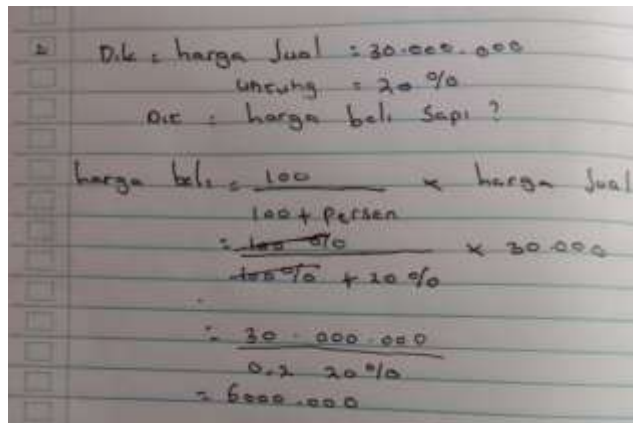 2 Dik : harga Jual : 30.000.000
untung = 20 %
Dit : harga beli sapi ?
harga beli = 100 × harga Jual
100 + persen
= 100 % × 30.000
100 % + 20 %
= 30.000.000
0.2 20 %
= 6000.000